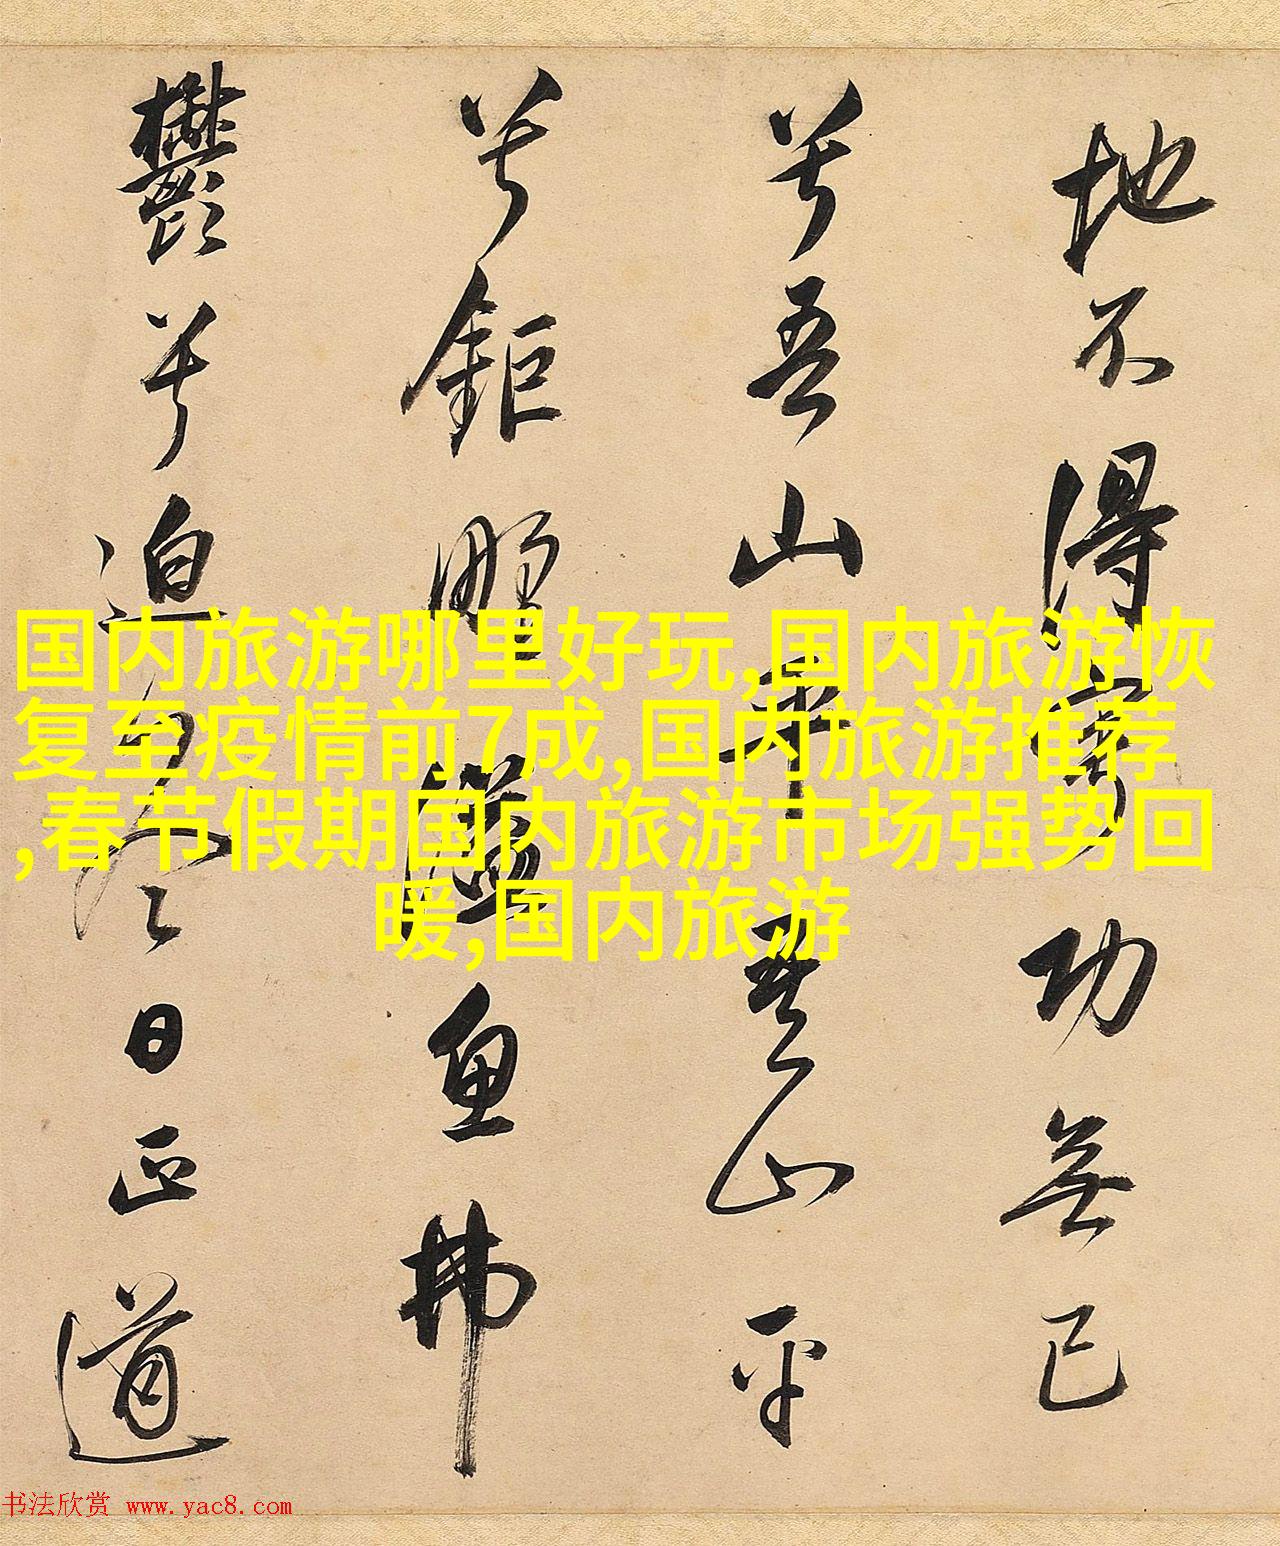 地不得寧功無已
兮吾山平吾山平
兮鉅野溢魚弗
鬱兮迫於冬日正道
国内旅游哪里好玩,国内旅游恢
复至疫情前7成,国内旅游推荐
,春节假期国内旅游市场强势回
暖,国内旅游
书法欣赏 www.yac8.com